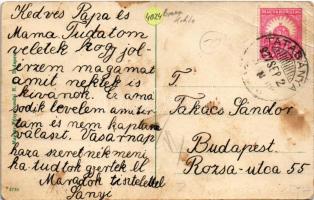 Kedves Papa és
Mama Tudatom
veletek hogy jol
érzem magamat
amit nektek is
kivánok. Ez a má
sodik levelem amit ir
tam és nem kaptam
választ. Vasárnap
haza szeretnék menni
ha tudtok gyertek el
Maradok tisztelettel
Sanyi
4024
MAGYARORSZÁG
TATABÁNYA
T.
Takács Sándor
Budapest
Rozsa-utca 55